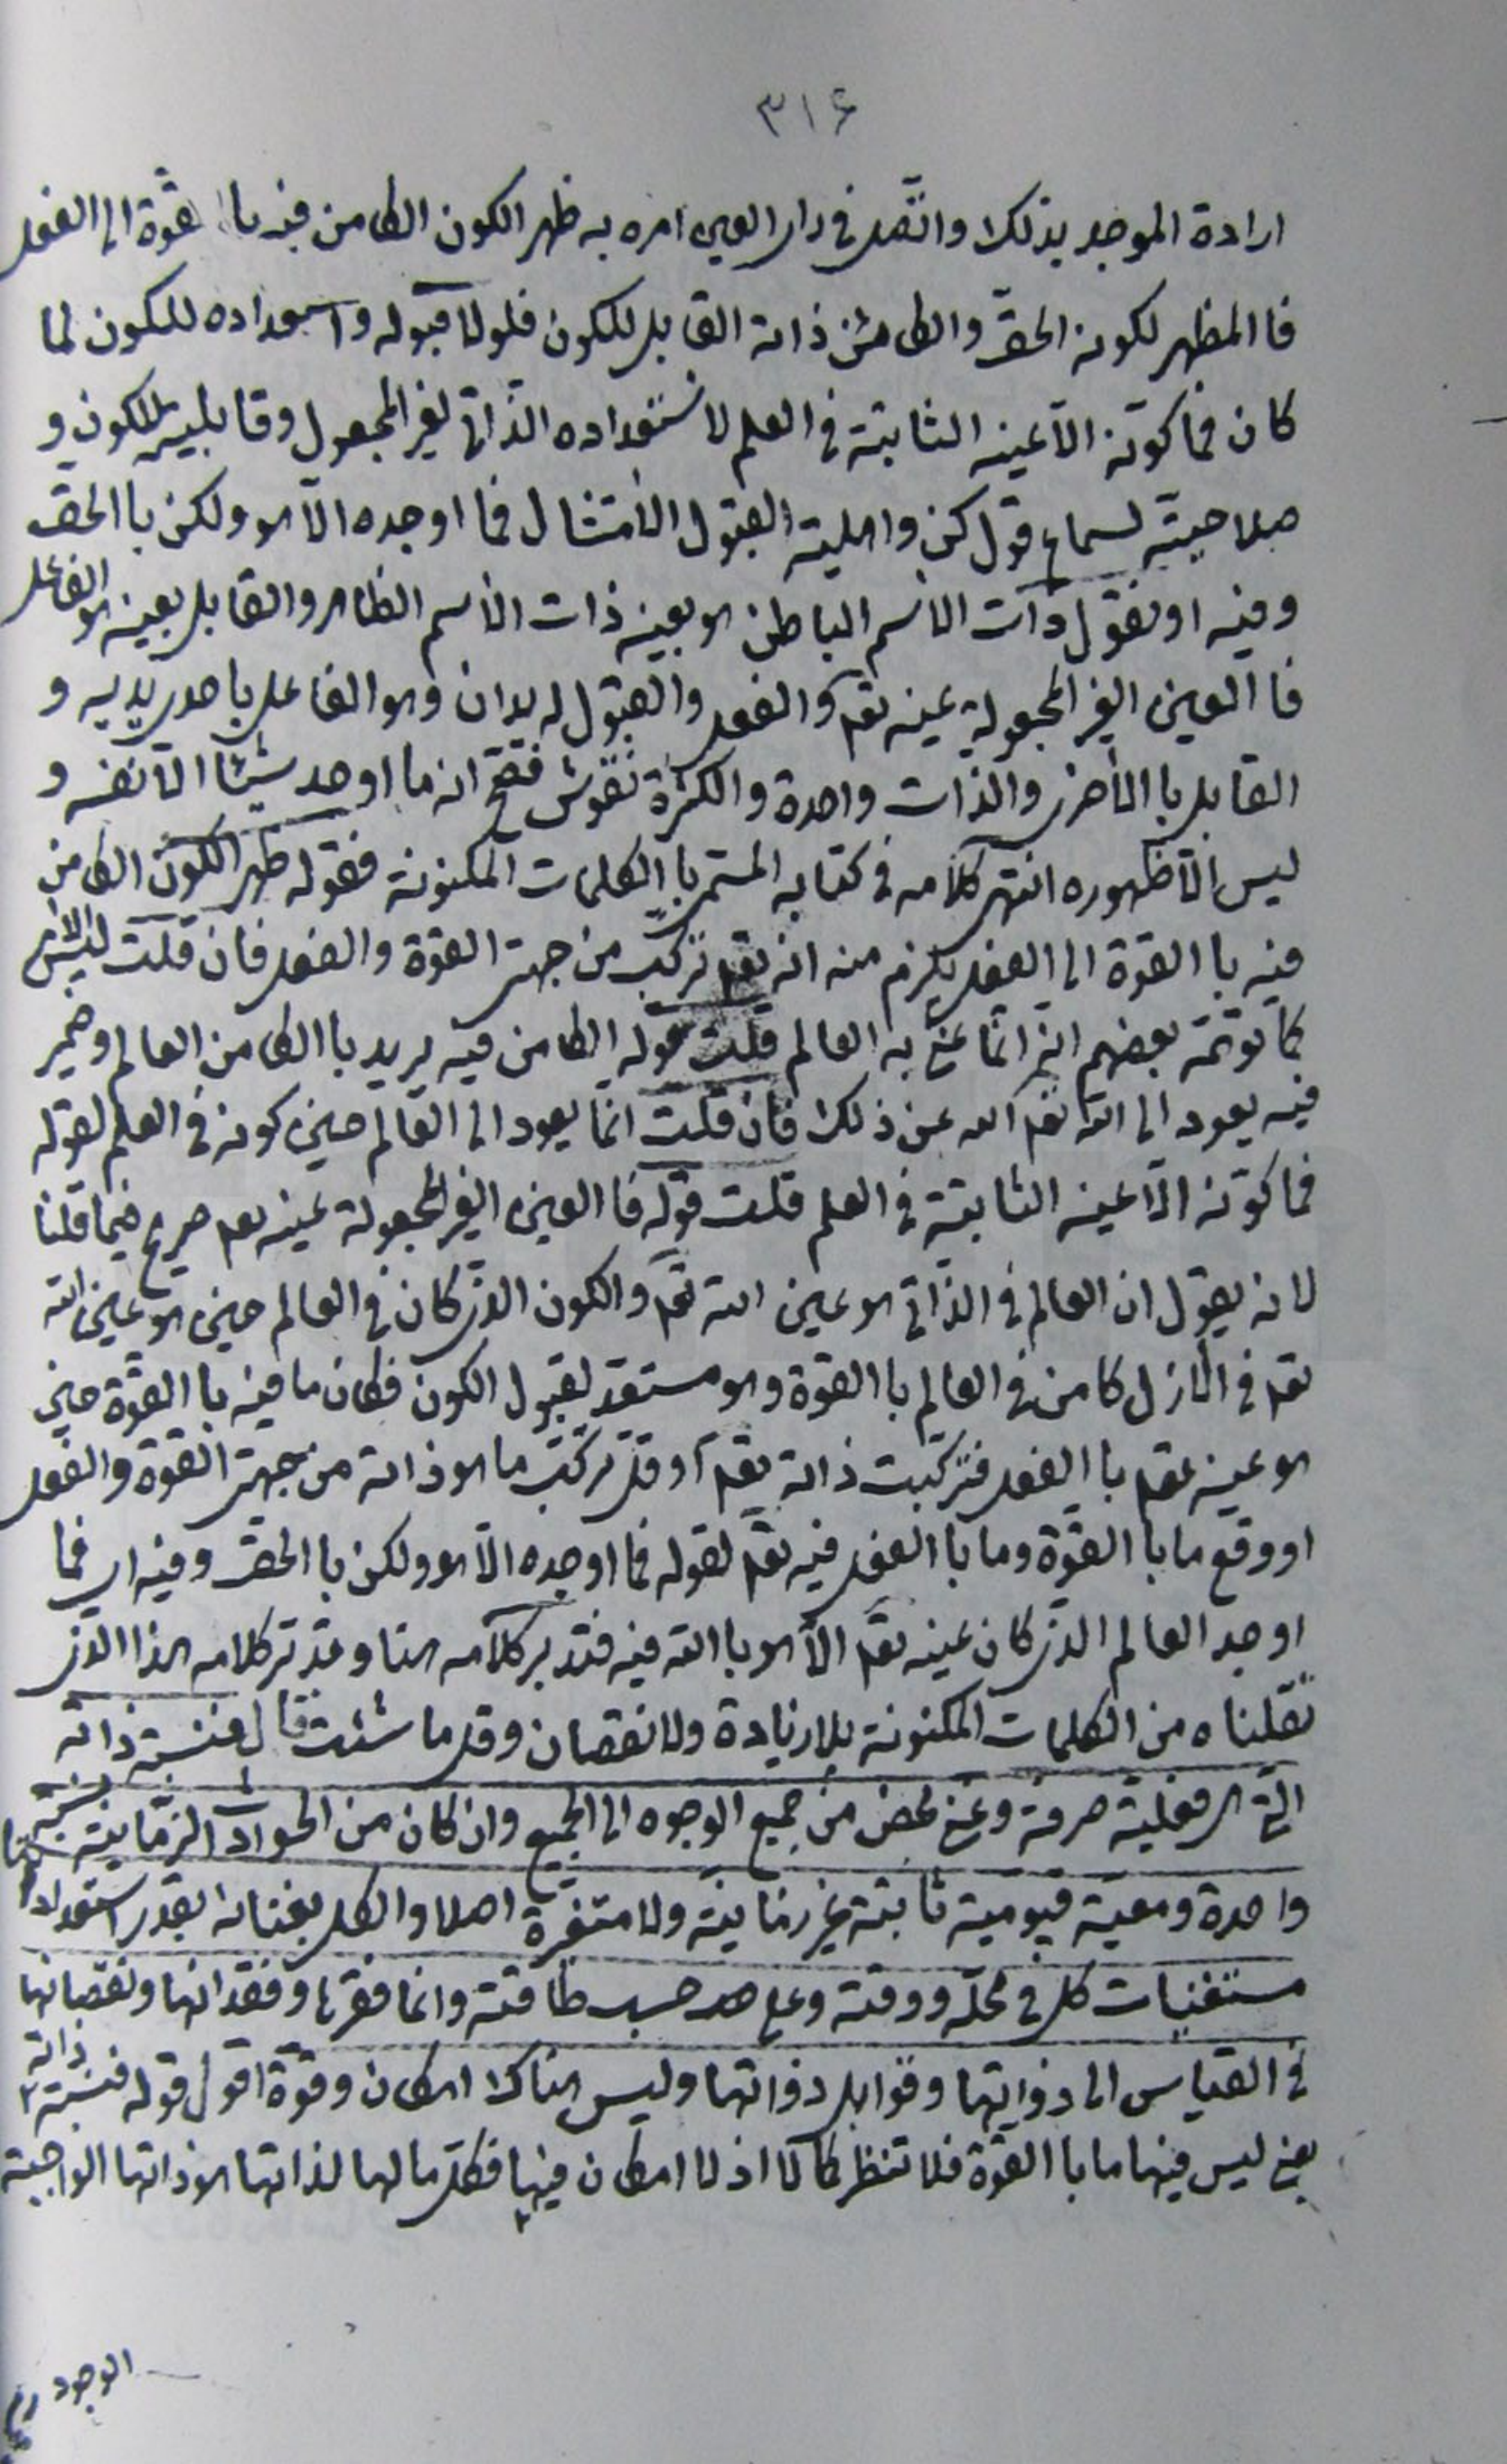 ٣١۶
ارادة الموجد بذلك واتصل في رأى العين امره به ظهر الكون الكامن فيه باالقوة الى الفعل
فاالمظهر لكونه الحق والكامن ذاته القابل للكون فلولا قبوله واستعداده للكون لما
كان فما كونه الا عينه الثابتة في العلم لاستعداده الذاتي الغير المجعول وقابليته للكون و
صلاحيته لسماع قول كن واهليته لقبول الامتثال فما اوجده الا هو ولكن باالحق
وفيه او نقول ذات الاسم الباطن هو بعينه ذات الاسم الظاهر والقابل بعينه هو الفاعل
فاالعين الغير المجعولة عينه تعم والفعل والقبول له يدان وهو الفاعل باحدى يديه و
القابل باالأخرى والذات واحدة والكثرة نقوش فصح انه ما اوجد شيئا الا نفسه و
ليس الا ظهوره انتهى كلامه في كتابه المسمى باالكلمات المكنونة فقوله ظهر الكون الكامن
فيه باالقوة الى الفعل يلزم منه انه تعم تركب من جهتى القوة والفعل فان قلت ليس الامر
كما توهمه بعضهم انه انما عنى به العالم قلت قوله الكامن فيه يريد باالكامن العالم وضمير
فيه يعود الى الله تعم الله عن ذلك فان قلت انما يعود الى العالم حين كونه في العلم لقوله
فما كونه الا عينه الثابتة في العلم قلت قوله فاالعين الغير المجعولة عينه تعم صريح فيما قلنا
لانه يقول ان العالم في الذاتي هو عين الله تعم والكون الذى كان في العالم حين هو عين الله
تعم في الازل كامن في العالم باالقوة وهو مستعد لقبول الكون فكان ما فيه باالقوة حين
هو عينه تعم باالفعل فتركبت ذاته تعم او قل تركب ما هو ذاته من جهتى القوة والفعل
او وقع ما باالقوة وما باالفعل فيه تعم لقوله فما اوجده الا هو ولكن باالحق وفيه اى فما
اوجد العالم الذى كان عينه تعم الا هو باالله فيه فتدبر كلامه هنا وتدبر كلامه هذا الذى
نقلناه من الكلمات المكنونة بلا زيادة ولا نقصان وقل ما شئت قال فنسبة ذاته
التي هي فعلية صرفة وغنى محض من جميع الوجوه الى الجميع وان كان من الحوادث الزمانية نسبة
واحدة ومعية قيومية ثابتة غير زمانية ولا متغيرة اصلا والكل بغنائه بقدر استعداداتها
مستغنيات كل في محله ووقته وعلى حسب طاقته وانما فقرها وفقدانها ونقصانها
في القياس الى ذواتها وقوابل ذواتها وليس هناك امكان وقوة اقول قوله فنسبة ذاته
يعنى ليس فيها ما باالقوة فلا تنظر كمالا اذ لا امكان فيها فكل ما لها لذاتها هو ذاتها الواجبة
الوجود